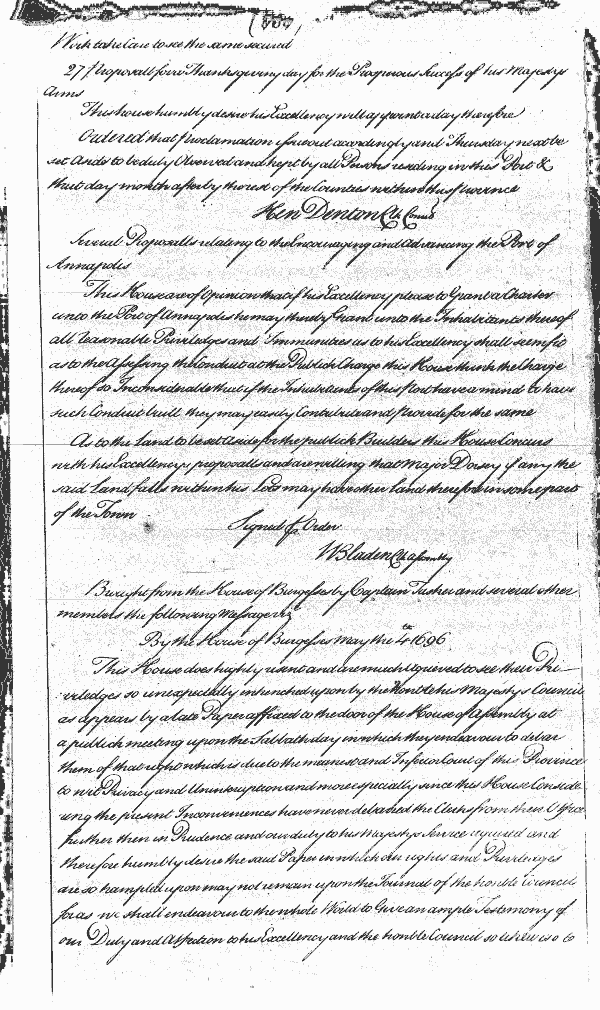 Work take Care to see the same secured
27 Proposall for a Thanksgiving day for the Prosperous Success of his Majestys
Arms
This house humbly desire his Excellency will appoint a day therefore
Ordered that Proclamation issue out accordingly and Thursday next be
set Aside to be duly Observed and kept by all Persons residing in this Port &
that day month after by the rest of the Counties within this Province
Hen Denton Clk Council
Severall Proposalls relating to the Encouraging and advancing the Port of
Annapolis
This House are of Opinion that if his Excellency please to Grant a Charter
unto the Port of Annapolis he may thereby Grant unto the Inhabitants thereof
all reasonable Priviledges and Immunities as to his Excellency shall seem fit
as to the Assessing the Conduit at the Publick Charge this House think the Charge
thereof so Inconsiderable that if the Inhabitants of this Port have a mind to have
such Conduit built they may easily Contribute and Provide for the same
As to the Land to be sett aside for the publick Builders this House Concurs
with his Excellencys proposalls and are willing that Major Dorsey if any the
said Land falls within his Lots may have other land therefore in some part
of the Town
Signed p Order
W Bladen Clk assembly
Brought from the House of Burgesses by Captain Tasker and several other
members the following Message viz
By the House of Burgesses May the 4th 1696
This House does highly resent and are much agrieved to see their Pri-
viledges so unexpectedly intrenched upon by the Honble his Majestys Council
as appears by a late Paper affixed to the door of the House of Assembly at
a publick meeting upon the Sabbath day in which they endeavour to debar
them of that right which is due to the meanest and Inferior Court of this Province
to wit Privacy and Uninterruption and more especially since this House Conside
ring the present Inconveniences have never debarred the Clerks from their Office
further then in Prudence and our duty to his Majestys Service required and
therefore humbly desire the said Paper in which our rights and Priviledges
are so trampled upon may not remain upon the Journal of the honble Council
for as we shall endeavour to the whole World to Give an ample Testimony of
our Duty and Affection to his Excellency and the honble Council so likewise to